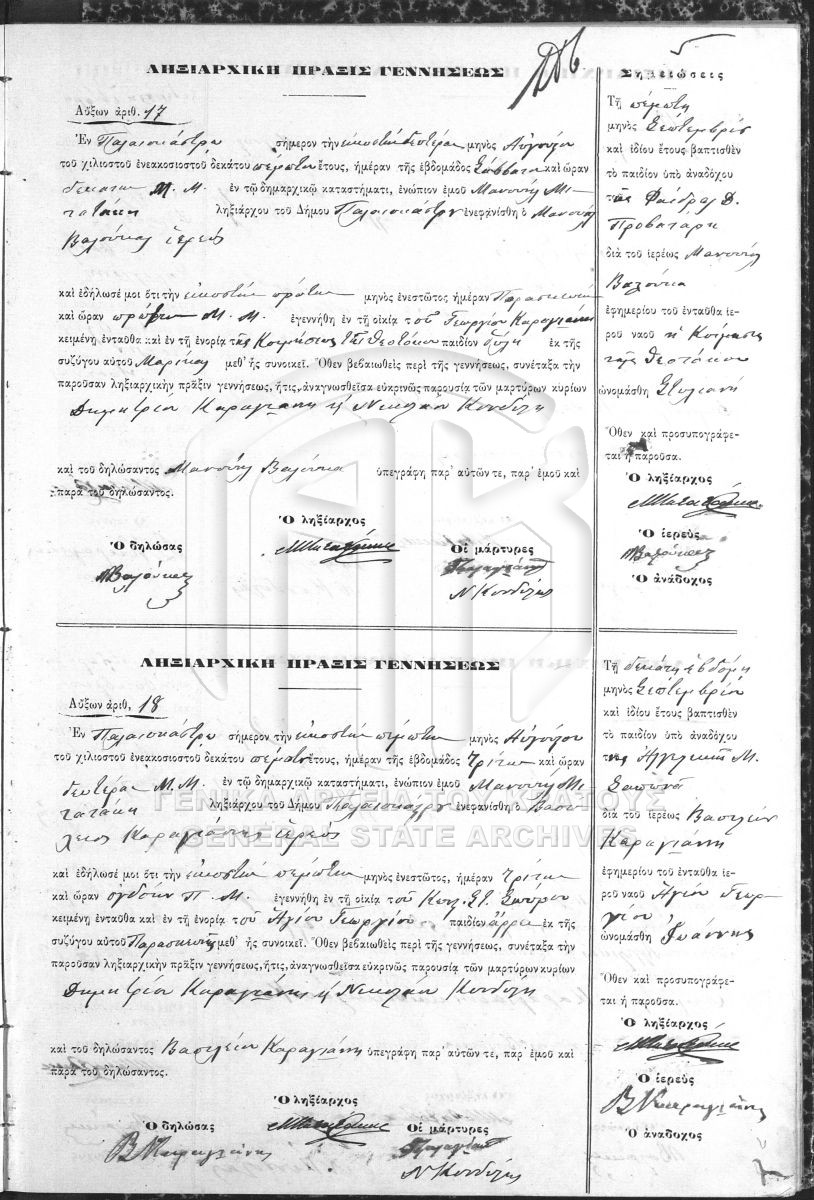 ΛΗΞΙΑΡΧΙΚΗ ΠΡΑΞΙΣ ΓΕΝΝΗΣΕΩΣ
Αὔξων ἀριθ. 17
Ἐν Παλαιοκάστρῳ σήμερον τὴν εἰκοστὴν δευτέραν μηνὸς Αὐγούστου
τοῦ χιλιοστοῦ ἐνεακοσιοστοῦ δεκάτου πέμπτου ἔτους, ἡμέραν τῆς ἑβδομάδος Σάββατον καὶ ὥραν
δεκάτην Π. Μ. ἐν τῷ δημαρχικῷ καταστήματι, ἐνώπιον ἐμοῦ Μανουὴλ Μι-
τατάκη ληξιάρχου τοῦ Δήμου Παλαιοκάστρου ἐνεφανίσθη ὁ Μανουὴλ
Βαλούκας ἱερεὺς
καὶ ἐδήλωσέ μοι ὅτι τὴν εἰκοστὴν πρώτην μηνὸς ἐνεστῶτος ἡμέραν Παρασκευὴν
καὶ ὥραν Μ. Μ. ἐγεννήθη ἐν τῇ οἰκίᾳ τοῦ Γεωργίου Καραγιάννη
κειμένῃ ἐνταῦθα καὶ ἐν τῇ ἐνορίᾳ τῆς Κοιμήσεως τῆς Θεοτόκου παιδίον θῆλυ ἐκ τῆς
συζύγου αὐτοῦ Μαρίκας μεθ' ἧς συνοικεῖ. Ὅθεν βεβαιωθεὶς περὶ τῆς γεννήσεως, συνέταξα τὴν
παροῦσαν ληξιαρχικὴν πρᾶξιν γεννήσεως, ἥτις, ἀναγνωσθεῖσα εὐκρινῶς παρουσίᾳ τῶν μαρτύρων κυρίων
Δημητρίου Καραγιάννη ἢ Νικολάου Κονδύλη
καὶ τοῦ δηλώσαντος Μανουὴλ Βαλούκα ὑπεγράφη παρ' αὐτῶν τε, παρ' ἐμοῦ καὶ
παρὰ τοῦ δηλώσαντος.
Ὁ ληξίαρχος
Ὁ δηλώσας ΜΜιτατάκης Οἱ μάρτυρες
ΜΒαλούκας Καραγιάνης
Ν Κονδύλης
Σημειώσεις
Τῇ πέμπτῃ
μηνὸς Σεπτεμβρίου
καὶ ἰδίου ἔτους βαπτισθὲν
τὸ παιδίον ὑπὸ ἀναδόχου
τῆς Φαίδρας Δ.
Προβατάρη
διὰ τοῦ ἱερέως Μανουὴλ
Βαλούκα
ἐφημερίου τοῦ ἐνταῦθα ἱε-
ροῦ ναοῦ ἡ Κοίμησις
τῆς Θεοτόκου
ὠνομάσθη Στυλιανὴ
Ὅθεν καὶ προσυπογράφε-
ται ἡ παροῦσα.
Ὁ ληξίαρχος
ΜΜιτατάκης
Ὁ ἱερεὺς
ΜΒαλούκας
Ὁ ἀνάδοχος
ΛΗΞΙΑΡΧΙΚΗ ΠΡΑΞΙΣ ΓΕΝΝΗΣΕΩΣ
Αὔξων ἀριθ, 18
Ἐν Παλαιοκάστρῳ σήμερον τὴν εἰκοστὴν πέμπτην μηνὸς Αὐγούστου
τοῦ χιλιοστοῦ ἐνεακοσιοστοῦ δεκάτου πέμπτου ἔτους, ἡμέραν τῆς ἑβδομάδος Τρίτην καὶ ὥραν
δευτέραν Μ. Μ. ἐν τῷ δημαρχικῷ καταστήματι, ἐνώπιον ἐμοῦ Μανουὴλ Μι-
τατάκη ληξιάρχου τοῦ Δήμου Παλαιοκάστρου ἐνεφανίσθη ὁ Βασί-
λειος Καραγιάννης ἱερεὺς
καὶ ἐδήλωσέ μοι ὅτι τὴν εἰκοστὴν πέμπτην μηνὸς ἐνεστῶτος, ἡμέραν Τρίτην
καὶ ὥραν ὀγδόην Π. Μ. ἐγεννήθη ἐν τῇ οἰκίᾳ τοῦ Κων. Στ.
κειμένῃ ἐνταῦθα καὶ ἐν τῇ ἐνορίᾳ τοῦ Ἁγίου Γεωργίου παιδίον ἄρρεν ἐκ τῆς
συζύγου αὐτοῦ Παρασκευῆς μεθ' ἧς συνοικεῖ. Ὅθεν βεβαιωθεὶς περὶ τῆς γεννήσεως, συνέταξα τὴν
παροῦσαν ληξιαρχικὴν πρᾶξιν γεννήσεως, ἥτις, ἀναγνωσθεῖσα εὐκρινῶς παρουσίᾳ τῶν μαρτύρων κυρίων
Δημητρίου Καραγιάννη ἢ Νικολάου Κονδύλη
καὶ τοῦ δηλώσαντος Βασιλείου Καραγιάννη ὑπεγράφη παρ' αὐτῶν τε, παρ' ἐμοῦ καὶ
παρὰ τοῦ δηλώσαντος.
Ὁ ληξίαρχος
Ὁ δηλώσας ΜΜιτατάκης Οἱ μάρτυρες
Β Καραγιάνης Καραγιάνης
Ν Κονδύλης
Τῇ δεκάτῃ ἑβδόμῃ
μηνὸς Σεπτεμβρίου
καὶ ἰδίου ἔτους βαπτισθὲν
τὸ παιδίον ὑπὸ ἀναδόχου
τῆς Ἀγγελικῆς Μ.
Σαπουνᾶ
διὰ τοῦ ἱερέως Βασιλείου
Καραγιάννη
ἐφημερίου τοῦ ἐνταῦθα ἱε-
ροῦ ναοῦ Ἁγίου Γεωρ-
γίου
ὠνομάσθη Ἰωάννης
Ὅθεν καὶ προσυπογράφε-
ται ἡ παροῦσα.
Ὁ ληξίαρχος
ΜΜιτατάκης
Ὁ ἱερεὺς
Β Καραγιάνης
Ὁ ἀνάδοχος
ΓΕΝΙΚΑ ΑΡΧΕΙΑ ΤΟΥ ΚΡΑΤΟΥΣ
GENERAL STATE ARCHIVES